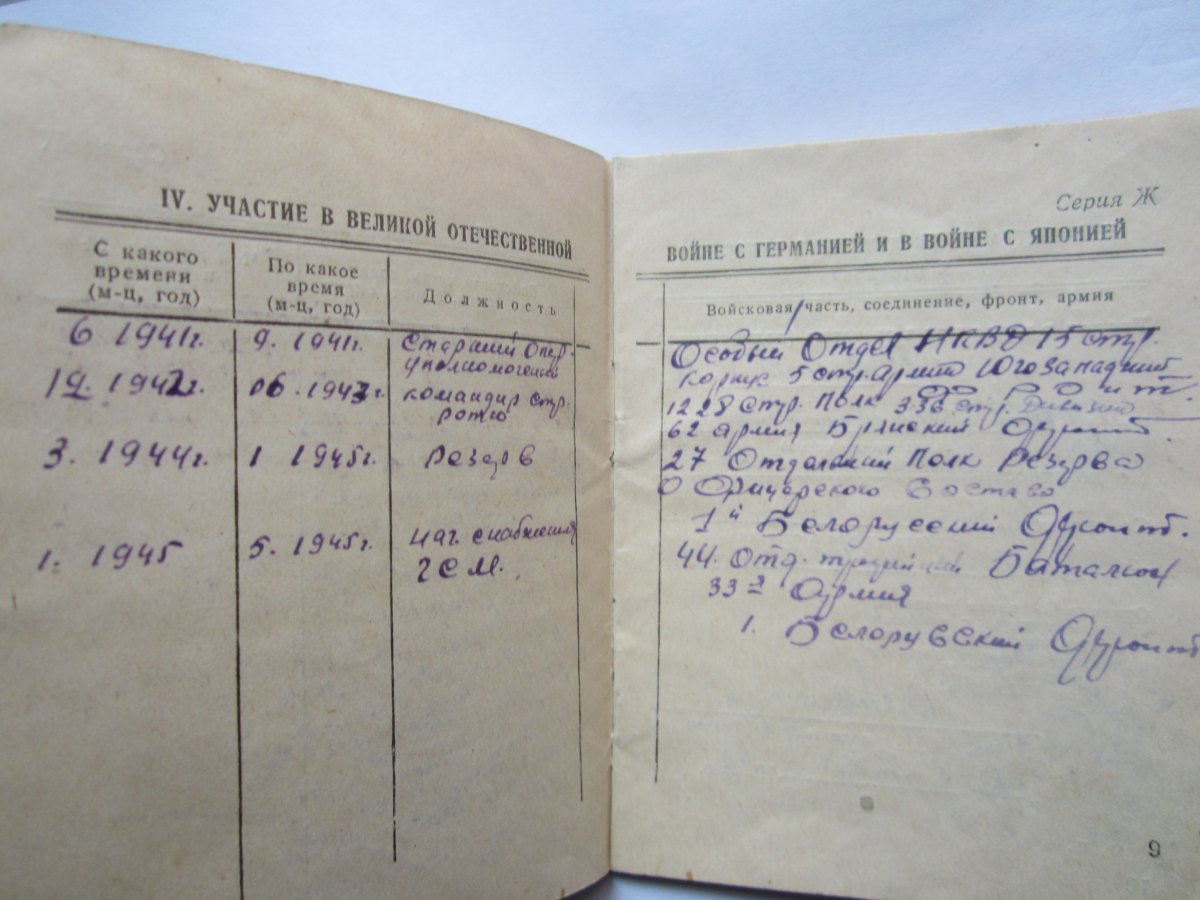 IV. УЧАСТИЕ В ВЕЛИКОЙ ОТЕЧЕСТВЕННОЙ
С какого
времени
(м-ц, год)
По какое
время
(м-ц, год)
Должность
6 1941г. 9. 1941г. Старший Опер.
уполномоченый
12. 1942г. 06. 1943г командир стр.
ротю
3. 1944г. 1 1945г. Резерв
1. 1945 5. 1945г. нач. снабжения
ГСМ.
Серия Ж
ВОЙНЕ С ГЕРМАНИЕЙ И В ВОЙНЕ С ЯПОНИЕЙ
Войсковая часть, соединение, фронт, армия
Особый Отдел НКВД 15 стр.
корпус 5 стр. армии Юго Западний
Фронт.
1228 стр. Полк 336 стр. Дивизии
62 армия Брянский Фронт.
27 Отдельний Полк Резерва
Офицерского Состава
1й Белорусский Фронт.
44. Отд. Батальон
33я Армия
1. Белорусский Фронт
9